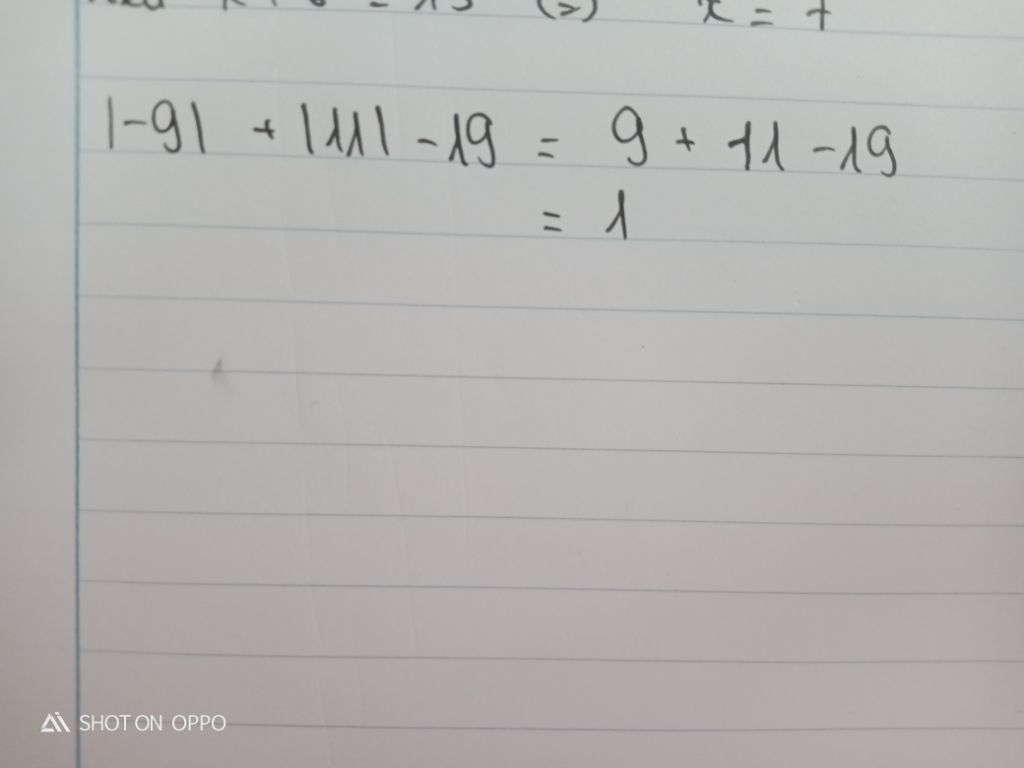 x = 7
|-9| + |11| - 19 = 9 + 11 - 19
= 1
SHOT ON OPPO